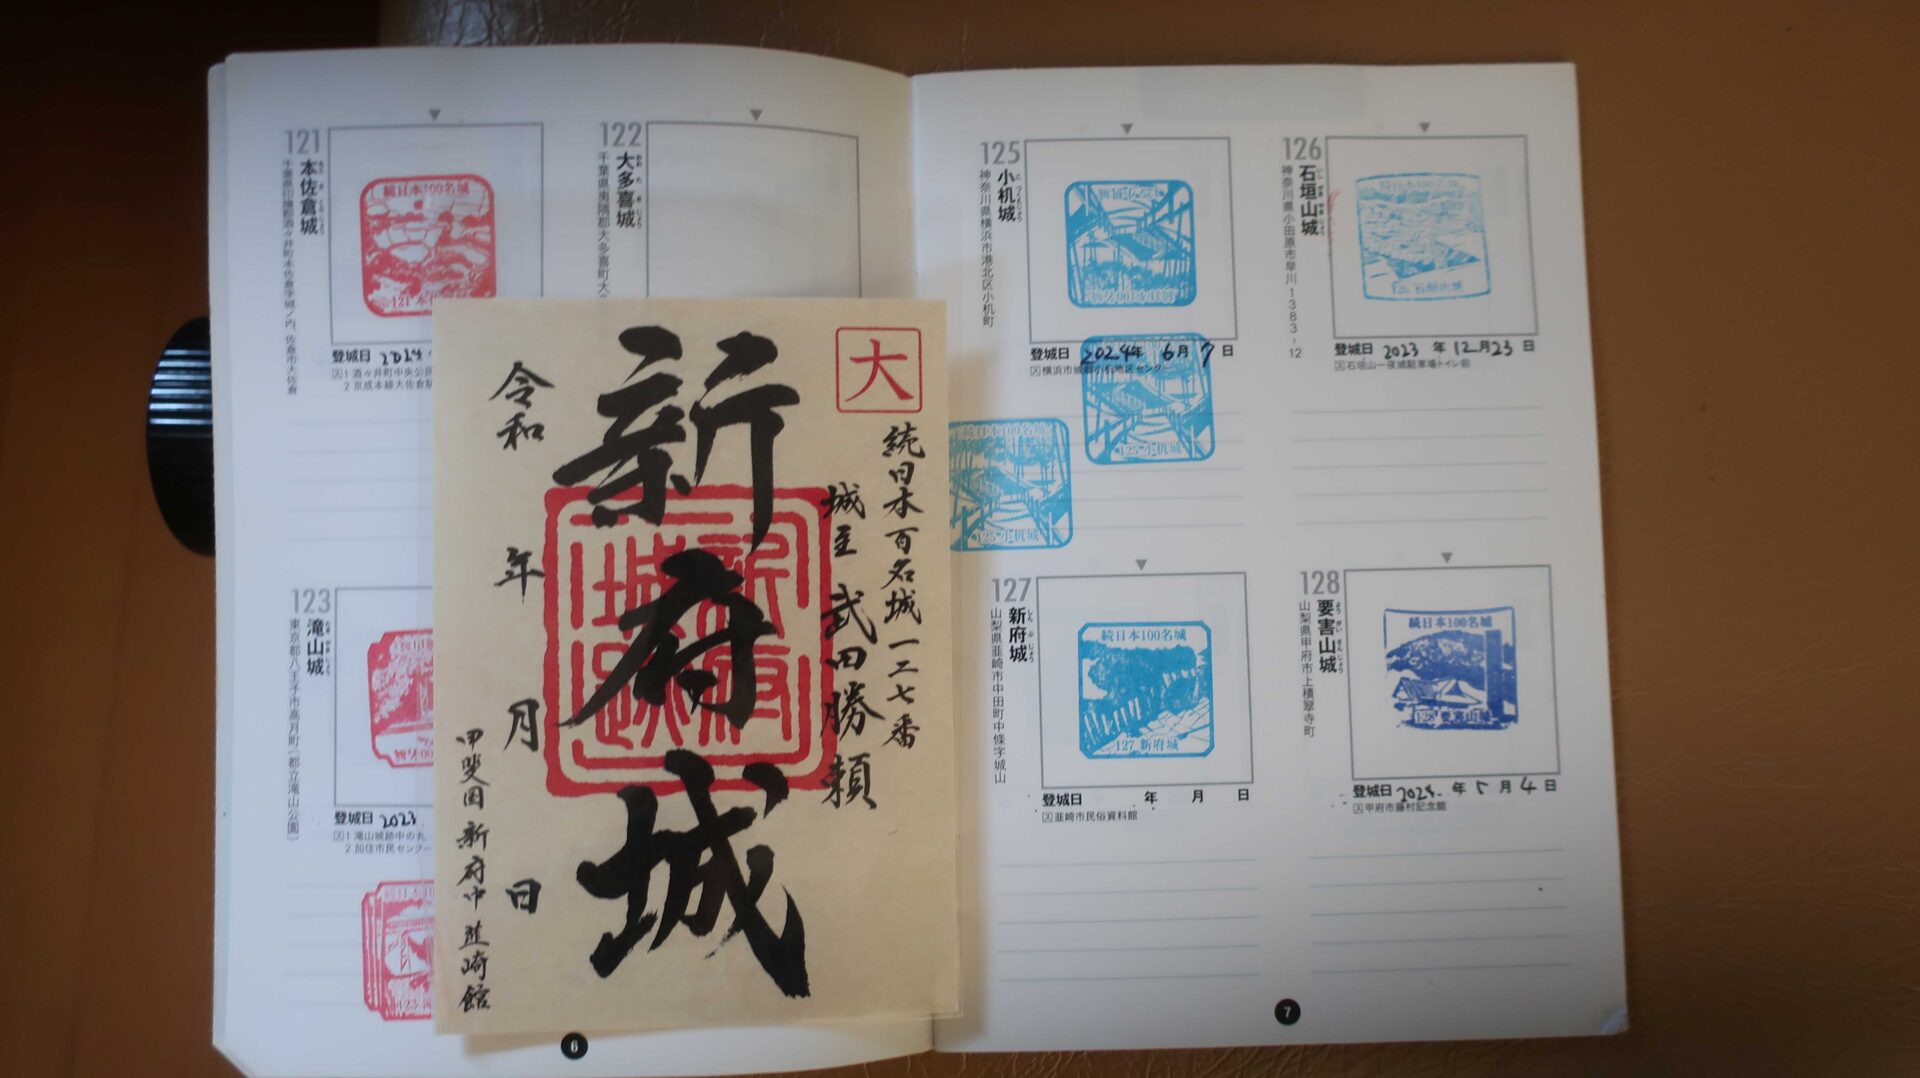 121
本佐倉城
千葉県印旛郡酒々井町本佐倉字城ノ内、佐倉市大佐倉
続日本100名城
登城日 2024
1 酒々井町中央公民
2 京成本線大佐倉駅
122
大多喜城
千葉県夷隅郡大多喜町大
123
滝山城
東京都八王子市高月町(都立滝山公園)
登城日 2023
1 滝山城跡中の丸
2 加住市民センター
大
続日本百名城一二七番
城主 武田勝頼
新府城
新府城跡
令和 年 月 日
甲斐国 新府中 韮崎館
6
125
小机城
神奈川県横浜市港北区小机町
登城日 2024年 6月 7日
125 小机城
続日本100名城
125 小机城
126
石垣山城
神奈川県小田原市早川1383-12
126 石垣山城
登城日 2023 年 12月 23日
石垣山一夜城駐車場トイレ前
127
新府城
しんぷじょう
山梨県韮崎市中田町中條字城山
続日本100名城
127 新府城
登城日 年 月 日
韮崎市民俗資料館
128
要害山城
ようがいさんじょう
山梨県甲府市上積翠寺町
続日本100名城
128 要害山城
登城日 2024. 年 5月 4日
甲府市藤村記念館
7